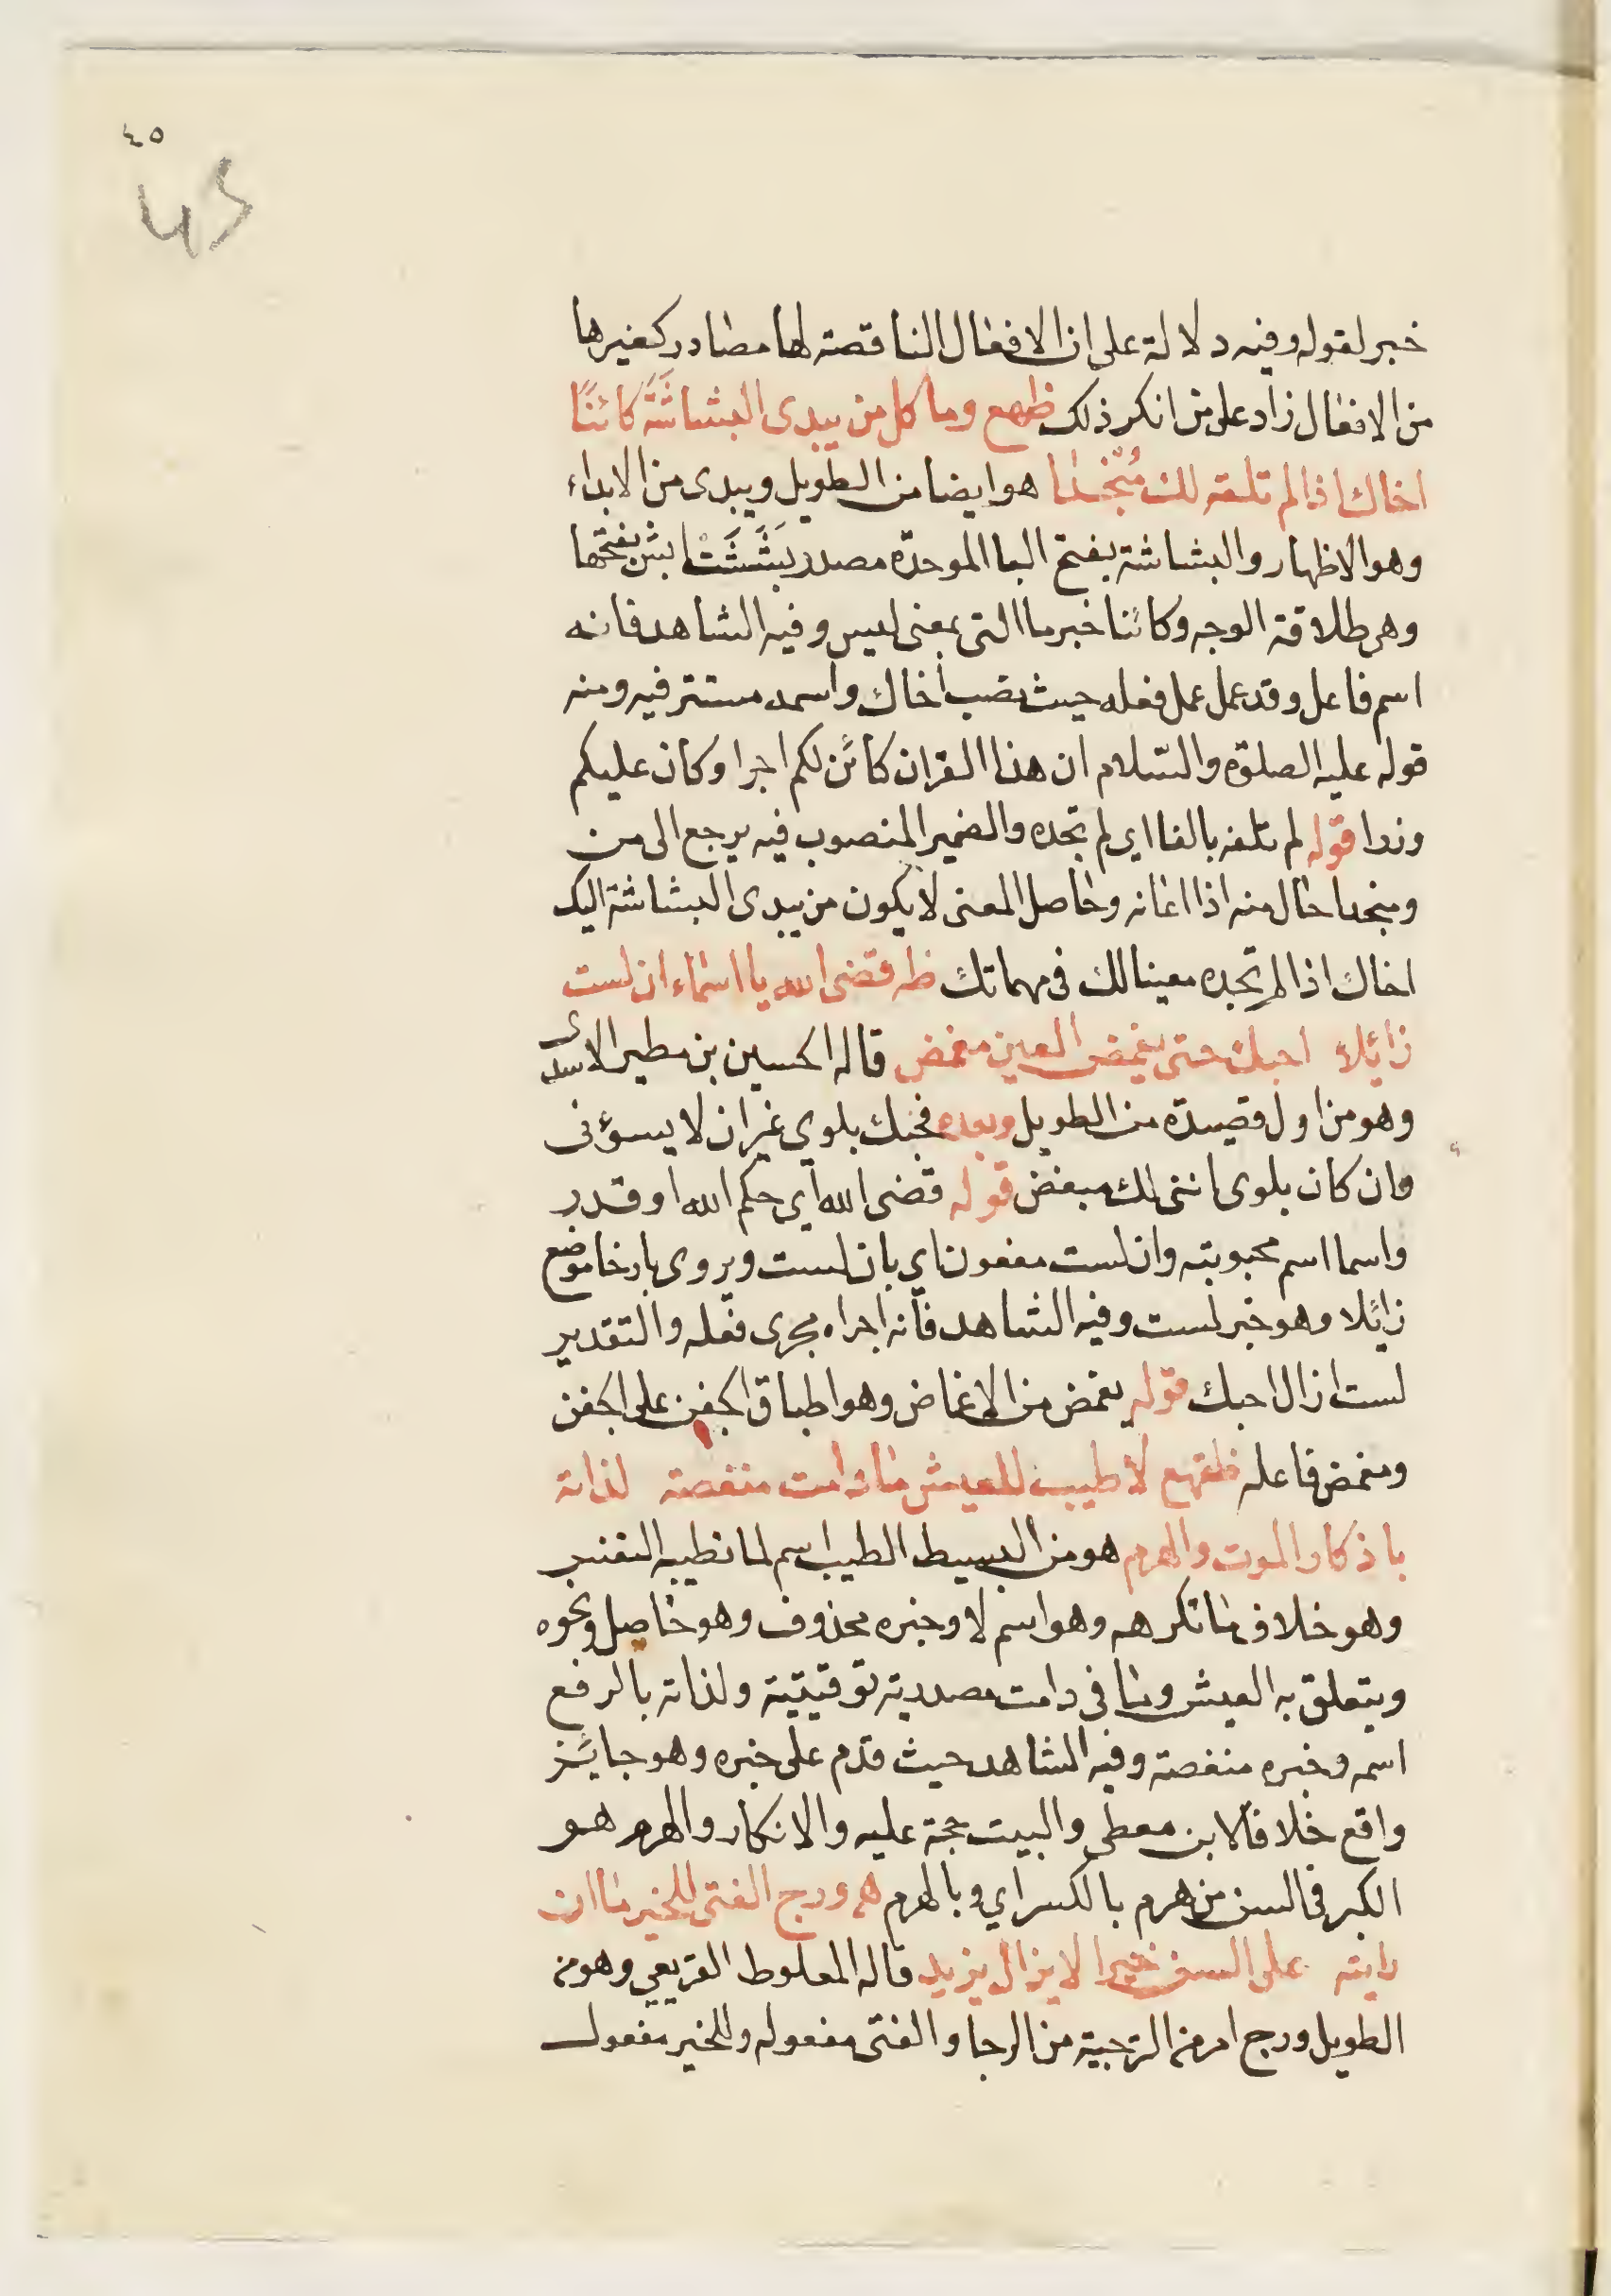 ٤٥
45
خبر لقوله وفيه دلالة على ان الافعال الناقصة لها مصادر كغيرها
من الافعال زاد على من انكر ذلك ظهع وما كل من يبدى البشاشَةَ كائنًا
اخاك اذا لم تلفه لك مُنْجدا هو ايضا من الطويل ويبدى من الابداء
وهو الاظهار والبشاشة بفتح البا الموحدة مصدر بَشَشَتْ ابش بفتحها
وهى طلاقة الوجه وكائنا خبر ما التى بمعنى ليس وفيه الشاهد فانه
اسم فاعل وقد عمل عمل فعله حيث نصب اخاك واسمه مستتر فيه ومنه
قوله عليه الصلوة والسّلام ان هذا القران كائن لكم اجرا وكان عليكم
وزرا قوله لم تلفه بالفا اى لم تجده والضمير المنصوب فيه يرجع الى من
ومنجدا حال منه اذا اعانه وحاصل المعنى لا يكون من يبدى البشاشة اليك
اخاك اذا لم تجده معينا لك فى مهماتك ظه قضى الله يا اسماء ان لست
زائلا احبك حتى يغمض العين مغمض قاله الحسين بن مطير الاسدى
وهو من اول قصيدة من الطويل وبعده فحبك بلوى غير ان لا يسؤنى
وان كان بلوى اننى لك مبغض قوله قضى الله اى حكم الله او قدر
واسما اسم محبوبته وان لست مفعون اي بان لست ويروى بارحا موضع
زائلا وهو خبر لست وفيه الشاهد فانه اجراه مجرى فعله والتقدير
لست ازال احبك قوله يغمض من الاغماض وهو اطباق الجفن على الجفن
ومغمض فاعله ظقهع لا طيب للعيش ما دامت منغصة لذاته
باذكار الموت والهرم هو من البسيط الطيب اسم لما تطيبه النفس
وهو خلاف ما تكرهه وهو اسم لا وخبره محذوف وهو حاصل ونحوه
ويتعلق به العيش وما فى دامت مصدرية توقيتية ولذاته بالرفع
اسمه وخبره منغصة وفيه الشاهد حيث قدم على خبره وهو جايز
واقع خلافا لابن معطى والبيت حجة عليه والانكار والهرم هو
الكبر فى السن من هرم بالكسر اي وبالهرم هع ورج الفتى للخير ما ان
رايته على السن خيرا لا يزال يزيد قاله المعلوط القريعي وهو من
الطويل ورج امر من الترجية من الرجا والفتى مفعوله وللخير مفعول